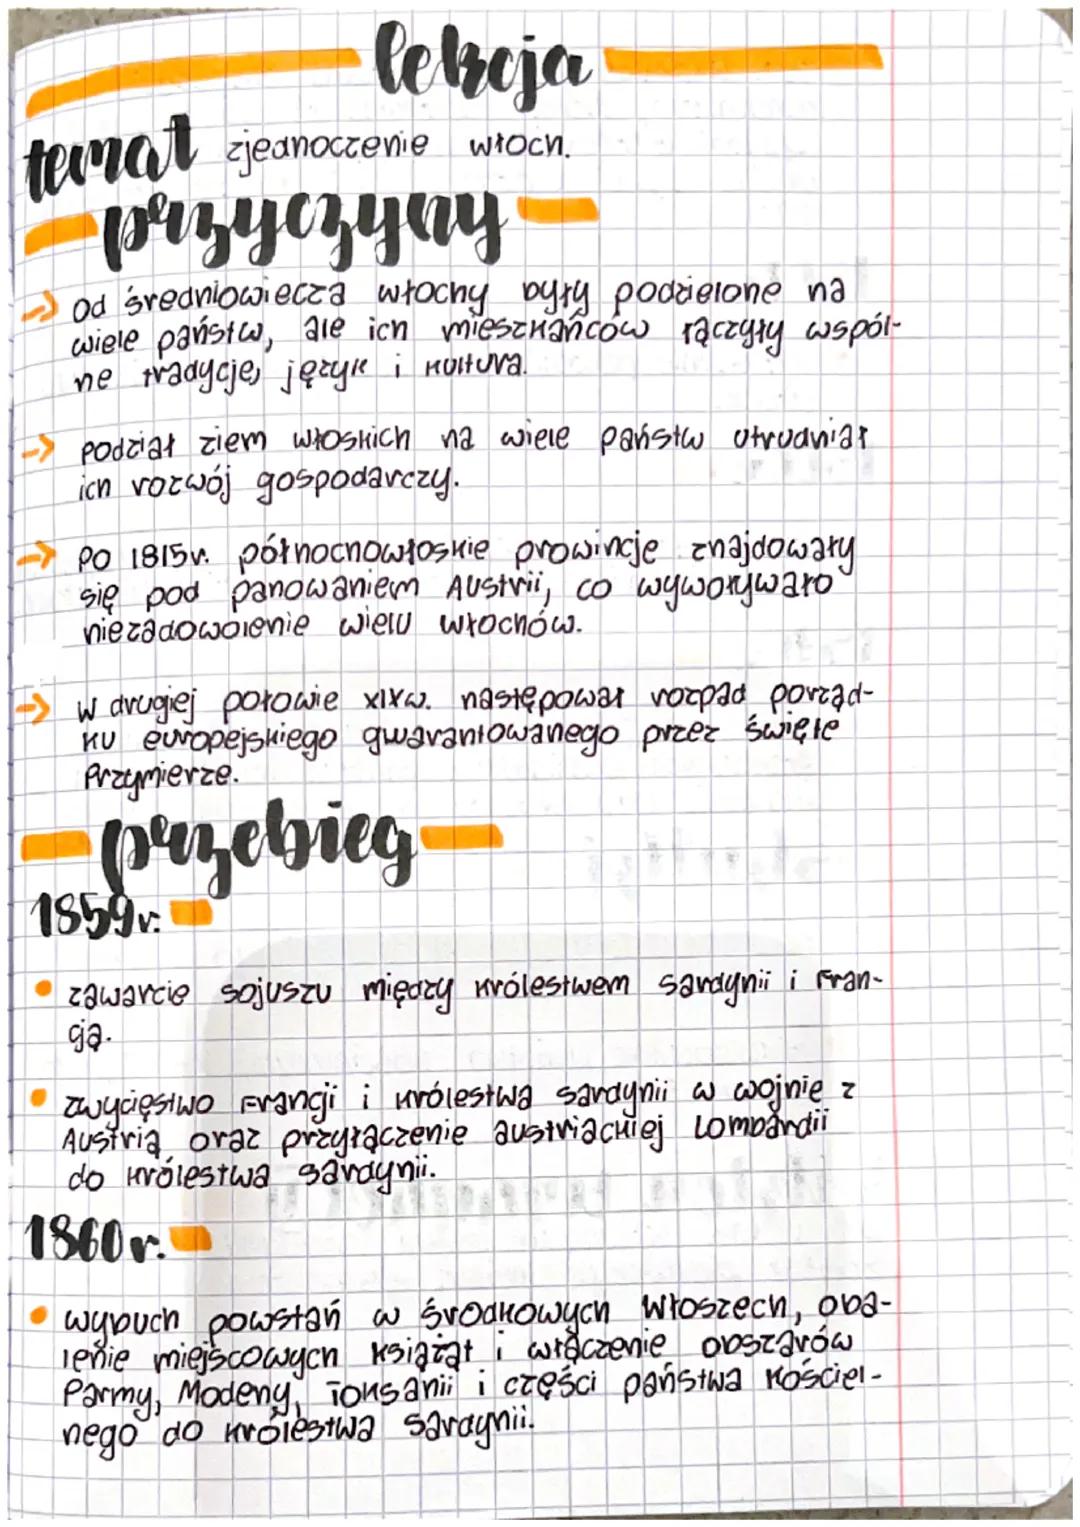 lekcja
temat zjednoczenie włoch.
przyczyny
→ Od średniowiecza włochy były podzielone na
wiele państw, ale ich mieszkańców łączyły wspól-
ne tradycje, język i kultura.
→ podział ziem włoskich na wiele państw utrudniał
ich rozwój gospodarczy.
→ PO 1815r. północnowłoskie prowincje znajdowały
się pod panowaniem Austrii, co wywoływało
niezadowolenie wielu włochów.
→ W drugiej połowie XIXw. następował rozpad porząd-
ku europejskiego gwarantowanego przez święte
Przymierze.
przebieg
1859r.
• zawarcie sojuszu między królestwem sardynii i Fran-
cją.
• zwycięstwo Francji i królestwa sardynii w wojnie z
Austrią oraz przyłączenie austriackiej Lombardii
do królestwa sardynii.
1860r.
• wybuch powstań w środkowych Włoszech, oba-
lenie miejscowych książąt i włączenie obszarów
Parmy, Modeny, Toksanii i części państwa kościel-
nego do królestwa sardynii.